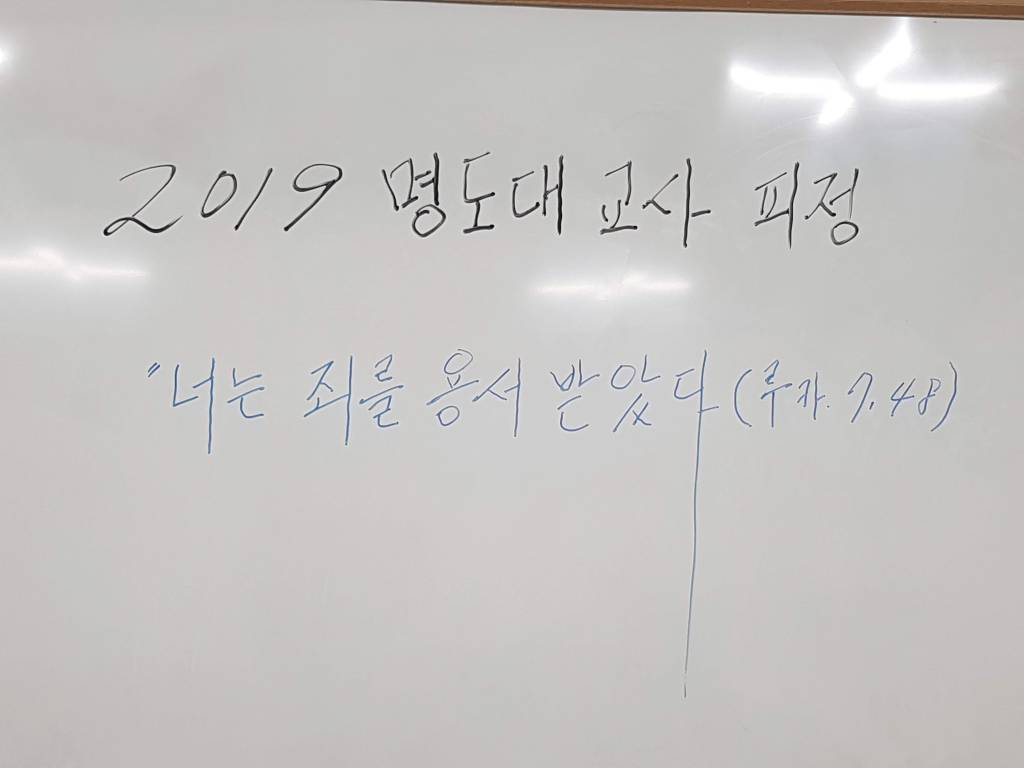 2019 명도대 교사 피정
"너는 죄를 용서 받았다 (루카. 7. 48)